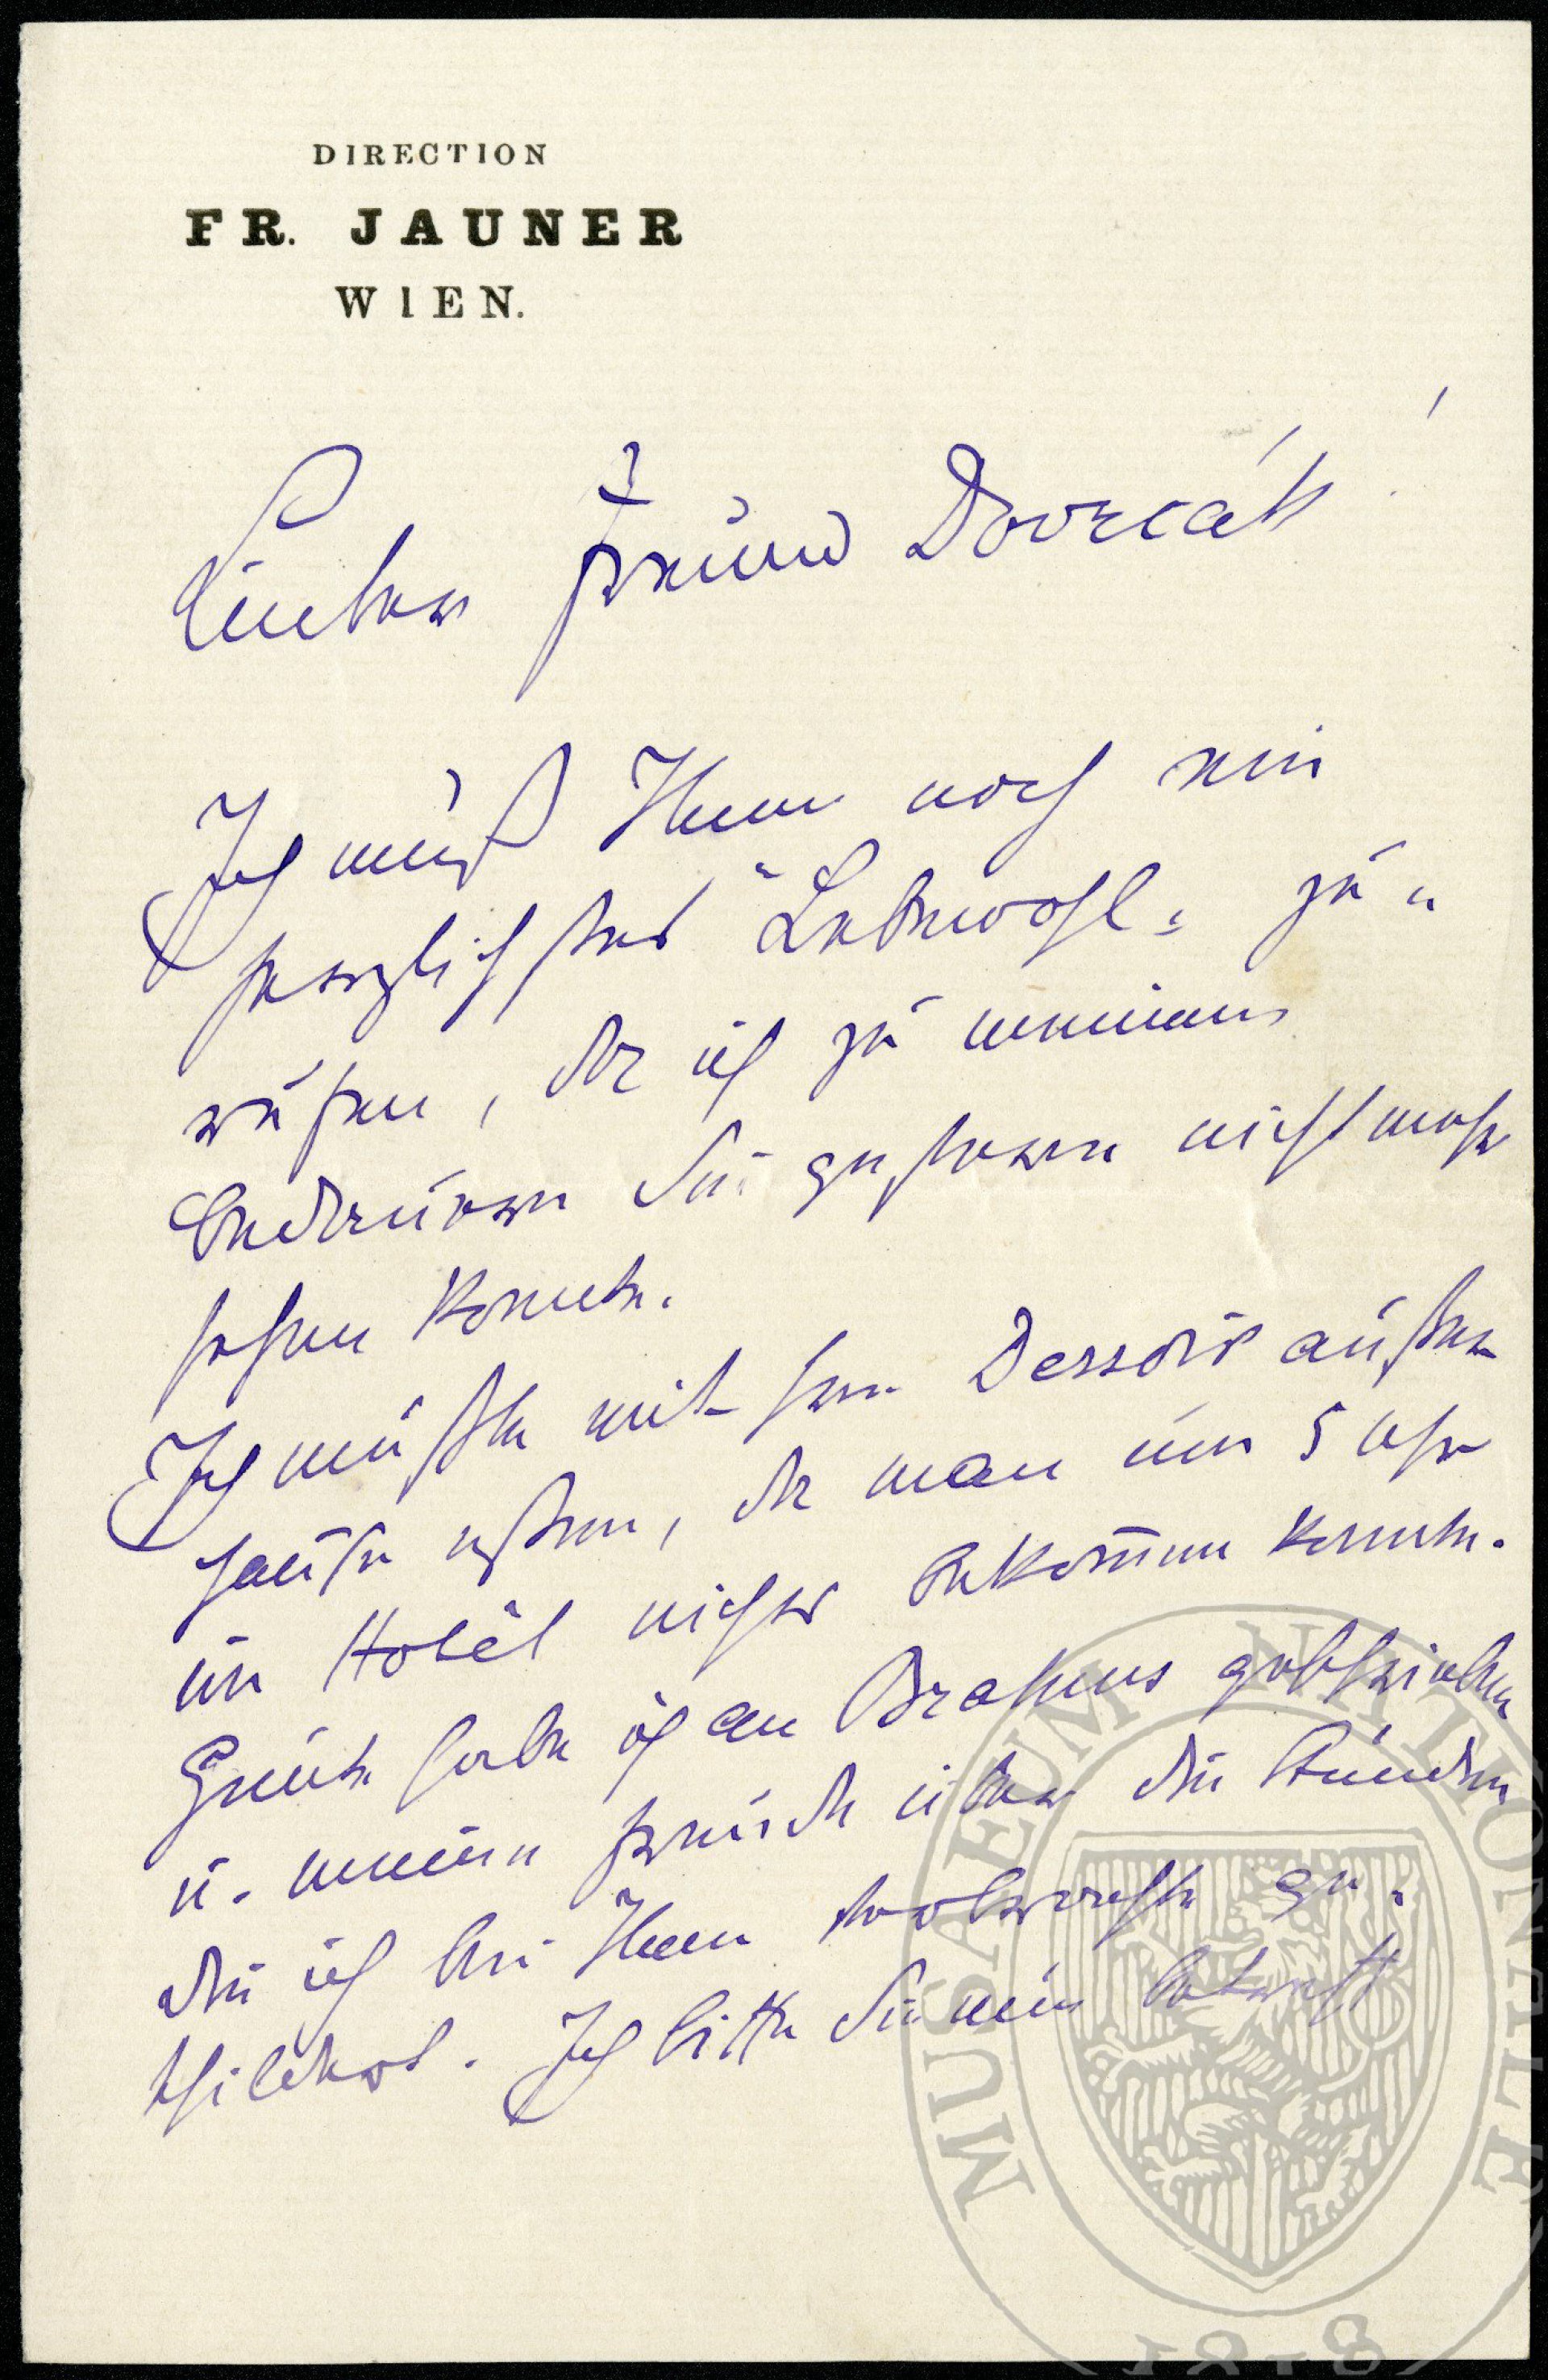 DIRECTION
FR. JAUNER
WIEN.
Lieber Freund Dvorcák!
Ich muß Ihnen noch ein
herzlichstes "Lebewohl" zu=
rufen, da ich zu meinem
Bedauern Sie gestern nicht mehr
sehen konnte.
Ich mußte mit Herrn Dessoir außer
Hause essen, da man um 5 Uhr
im Hotel nichts bekommen konnte.
Heute habe ich an Brahms geschrieben
u. meine Freude über die Stunden
die ich bei Ihnen verbrachte ge=
schildert. Ich bitte Sie mein
MUSAEUM NATIONALE
1818